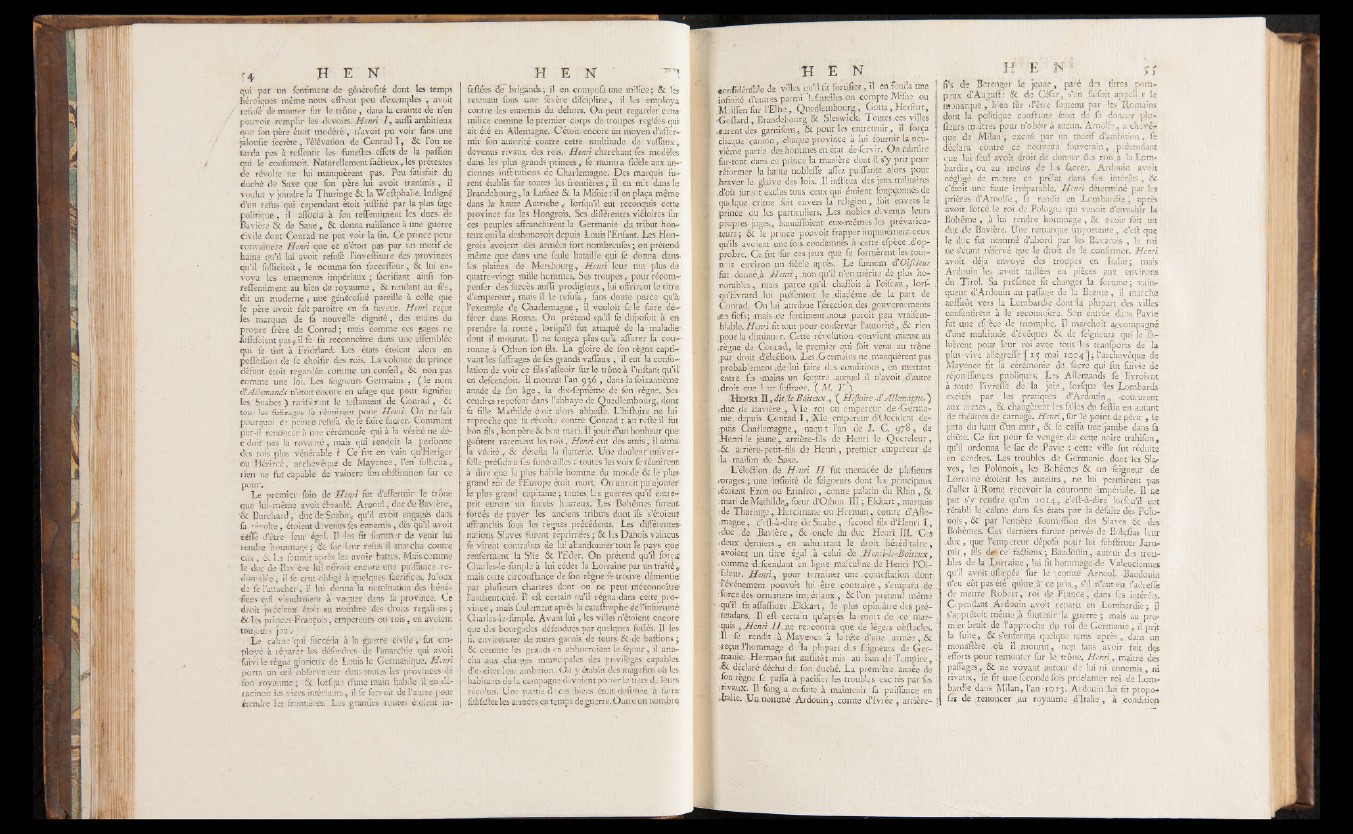 54 H E N
qui par un ſentiment de généroſité dont les temps
héroïques même nous offrent peu d'exemples, avoit
refuſé de monter ſur le trône, dans la crainte de n'en
pouvoir remplir les devoirs. Henri I, auſſi ambitieux
que ſon père étoit modéré, n'avoit pu voir ſans une
jalouſie ſecrète, l'élévation de Conrad I, & l'on ne
tarda pas à reſſentir les funeſtes effets de la paſſion
qui le conſumoit. Naturellement factieux, les prétextes
de révolte ne lui manquèrent pas. Peu ſatisfait du
duché de Saxe que ſon père lui avoit tranſmis, il
voulut y joindre la Thuringe & la Weſtphalie. Indigné
d'un refus qui cependant étoit juſtifié par la plus ſage
politique, il aſſocia à ſon reſſentiment les ducs de
Bavière & de Saxe, & donna naiſſance à une guerre
civile dont Conrad ne put voir la fin. Ce prince pour
convaincre Henri que ce n'étoit pas par un motif de
haine qu'il lui avoit refuſé l'inveſtiture des provinces
qu'il ſollicitoit, le nomma ſon ſucceſſeur, & lui en-
voya les ornements impériaux; ſacrifiant ainſi ſon
reſſentiment au bien du royaume, & rendant au fils,
dit un moderne, une généroſité pareille à celle que
le père avoit fait paroître en ſa faveur. Henri reçut
les marques de ſa nouvelle dignité, des mains du
propre frère de Conrad; mais comme ces gages ne
ſuffiſoient pas, il ſe fit reconnoître dans une aſſemblée
qui ſe tint à Fridzlard. Les états étoient alors en
poſſeſſion de ſe choiſir des rois. La volonté du prince
défunt étoit regardée comme un conſeil, & non pas
comme une loi. Les ſeigneurs Germains, (le nom
d'Allemands n'étoit encore en uſage que pour ſignifier
les Suabes) ratifièrent le teſtament de Conrad, &
tous les ſuffrages ſe réunirent pour Henri. On ne ſait
pourquoi ce prince refuſa de ſe faire ſacrer. Comment
put-il renoncer à une cérémonie qui à la vérité ne dé-
cidoit pas la royauté, mais qui rendoit la perſonne
des rois plus vénérable? Ce fut en vain qu'Hériger
ou Hérircé, archevêque de Mayence, l'en ſollicita,
rien ne fut capable de vaincre ſon obſtination ſur ce
point.
Le premier ſoin de Henri fut d'affermir le trône
que lui-même avoit ébranlé. Arnoul, duc de Bavière,
& Burchard, duc de Suabe, qu'il avoit engagés dans
ſa révolte, étoient devenus ſes ennemis, dès qu'il avoit
ceſſé d'être leur égal. Il les fit ſommer de venir lui
rendre hommage; & ſur leur refus il marcha contre
eux, & les ſoumit après les avoir battus. Mais comme
le duc de Bavière lui offroit encore une puiſſance re-
doutable, il ſe crut obligé à quelques ſacrifices. Jaloux
de ſe l'attacher, il lui donna la nomination des béné-
fices qui viendroient à vaquer dans ſa province. Ce
droit précieux étoit au nombre des droits regaliens;
& les princes François, empereurs ou rois, en avoient
toujours joui.
Le calme qui ſuccéda à la guerre civile, fut em-
ployé à réparer les déſordres de l'anarchie qui avoit
ſuivi le règne glorieux de Louis le Germanique. Henri
porta un œil obſervateur dans toutes les provinces de
ſon royaume; & lorſque d'une main habile il en dé-
racinoit les vices intérieurs, il ſe ſervoit de l'autre pour
étendre les frontières. Les grandes routes étoient in-
H E N
feſtées de brigands; il en compoſa une milice; & les
retenant ſous une ſévère diſcipline, il les employa
contre les ennemis du dehors. On peut regarder cette
milice comme le premier corps de troupes réglées qui
ait été en Allemagne. C'étoit encore un moyen d'affer-
mir ſon autorité contre cette multitude de vaſſaux,
devenus rivaux des rois. Henri cherchant ſes modèles
dans les plus grands princes, ſe montra fidèle aux an-
ciennes inſtitutions de Charlemagne. Des marquis fu-
rent établis ſur toutes les frontières; il en mit dans le
Brandebourg, la Luſace & la Miſnie: il en plaça même
dans la haute Autriche, lorſqu'il eut reconquis cette
province ſur les Hongrois. Ses différentes victoires ſur
ces peuples affranchirent la Germanie du tribut hon-
teux qui la déshonoroit depuis Louis l'Enfant. Les Hon-
grois avoient des armées fort nombreuſes; on prétend
même que dans une ſeule bataille qui ſe donna dans
les plaines de Mersbourg, Henri leur tua plus de
quatre-vingt mille hommes. Ses troupes, pour récom-
penſer des ſuccès auſſi prodigieux, lui offrirent le titre
d'empereur, mais il le refuſa, ſans doute parce qu'à
l'exemple de Charlemagne, il vouloit ſe le faire dé-
férer dans Rome. On prétend qu'il ſe diſpoſoit à en
prendre la route, lorſqu'il fut attaqué de la maladie
dont il mourut. Il ne ſongea plus qu'à aſſurer la cou-
ronne à Othon ſon fils. La gloire de ſon règne capti-
vant les ſuffrages de ſes grands vaſſaux, il eut la conſo-
lation de voir ce fils s'aſſeoir ſur le trône à l'inſtant qu'il
en deſcendoit. Il mourut l'an 936, dans la ſoixantième
année de ſon âge, la dix-ſeptième de ſon règne. Ses
cendres repoſent dans l'abbaye de Quedlembourg, dont
ſa fille Mathilde étoit alors abbeſſe. L'hiſtoire ne lui
reproche que ſa révolte contre Conrad: au reſte il fut
bon fils, bon père & bon mari. Il jouit d'un bonheur que
goûtent rarement les rois, Henri eut des amis, il aima
la vérité, & déteſta la flatterie. Une douleur univer-
ſelle préſida à ſes funérailles: toutes les voix ſe réunirent
à dire que le plus habile homme du monde & le plus
grand roi de l'Europe étoit mort. On auroit pu ajouter
le plus grand capitaine; toutes les guerres qu'il entre-
prit eurent un ſuccès heureux. Les Bohêmes furent
forcés de payer les anciens tributs dont ils s'étoient
affranchis ſous les règnes précédents. Les différentes
nations Slaves furent réprimées; & les Danois vaincus
ſe virent contraints de lui abandonner tout le pays que
renferment la Slie & l'Eder. On prétend qu'il força
Charles-le-ſimple à lui céder la Lorraine par un traité,
mais cette circonſtance de ſon règne ſe trouve démentie
par pluſieurs chartres dont on ne peut méconnoître
l'authenticité. Il eſt certain qu'il régna dans cette pro-
vince, mais ſeulement après la cataſtrophe de l'infortuné
Charles-le-ſimple. Avant lui, les villes n'étoient encore
que des bourgades défendues par quelques foſſés. Il les
fit environner de murs garnis de tours & de baſtions;
& comme les grands en abhorroient le ſéjour, il atta-
cha aux charges municipales des privilèges capables
d'exciter leur ambition. On y établit des magaſins où les
habitants de la campagne devoient porter le tiers de leurs
récoltes. Une partie de ces biens étoit deſtinée à faire
ſubſiſter les armées en temps de guerre. Outre un nombre
H E N
conſidérable de villes qu'il fit fortifier, il en fonda une
infinité d'autres parmi leſquelles on compte Miſne ou
Meiſſen ſur l'Elbe, Quedlembourg, Gotta, Herfort,
Goſlard, Brandebourg & Sleswick. Toutes ces villes
eurent des garniſons, & pour les entretenir, il força
chaque canton, chaque province à lui fournir la neu-
vième partie des hommes en état de ſervir. On admire
ſur-tout dans ce prince la manière dont il s'y prit pour
réformer la haute nobleſſe aſſez puiſſante alors pour
braver le glaive des loix. Il inſtitua des jeux militaires
d'où furent exclus tous ceux qui étoient ſoupçonnés de
quelque crime ſoit envers la religion, ſoit envers le
prince ou les particuliers. Les nobles devenus leurs
propres juges, banniſſoient eux-mêmes les prévarica-
teurs; & le prince pouvoit frapper impunément ceux
qu'ils avoient une fois condamnés à cette eſpèce d'op-
probre. Ce fut ſur ces jeux que ſe formèrent les tour-
nois environ un ſiècle après. Le ſurnom d'Oiſeleur
fut donné à Henri, non qu'il n'en méritât de plus ho-
norables, mais parce qu'il chaſſoit à l'oiſeau, lorſ-
qu'Evrard lui préſentoit le diadème de la part de
Conrad. On lui attribue l'érection des gouvernements
en fiefs; mais ce ſentiment nous paroît peu vraiſem-
blable. Henri fit tout pour conſerver l'autorité, & rien
pour la diminuer. Cette révolution convient mieux au
règne de Conrad, le premier qui ſoit venu au trône
par droit d'élection. Les Germains ne manquèrent pas
probablement de lui faire des conditions, en mettant
entre ſes mains un ſceptre auquel il n'avoit d'autre
droit que leur ſuffrage. (M. Y.)
HENRI II, dit le Boiteux, (Hiſtoire d'Allemagne.)
duc de Bavière, VIe roi ou empereur de Germa-
nie, depuis Conrad I, XIe empereur d'Occident de-
puis Charlemagne, naquit l'an de J. C. 978, de
Henri le jeune, arrière-fils de Henri le Querelleur,
& arrière-petit-fils de Henri, premier empereur de
la maiſon de Saxe.
L'élection de Henri II fut menacée de pluſieurs
orages; une infinité de ſeigneurs dont les principaux
étoient Ezon ou Erinfroi, comte palatin du Rhin, &
mari de Mathilde, ſœur d'Othon III; Ekkart, marquis
de Thuringe, Hercimane ou Herman, comte d'Alle-
magne, c'eſt-à-dire de Suabe, ſecond fils d'Henri I,
duc de Bavière, & oncle du duc Henri III. Ces
deux derniers, en admettant le droit héréditaire,
avoient un titre égal à celui de Henri-le-Boiteux,
comme deſcendant en ligne maſculine de Henri l'Oi-
ſeleur. Henri, pour terminer une conteſtation dont
l'évènement pouvoit lui être contraire, s'empara de
force des ornements impériaux, & l'on prétend même
qu'il fit aſſaſſiner Ekkart, le plus opiniâtre des pré-
tendans. Il eſt certain qu'après la mort de ce mar-
quis, Henri II ne rencontra que de légers obſtacles.
Il ſe rendit à Mayence à la tête d'une armée, &
reçut l'hommage de la plupart des ſeigneurs de Ger-
manie. Herman fut auſſitôt mis au ban de l'empire,
& déclaré déchu de ſon duché. La première année de
ſon règne ſe paſſa à pacifier les troubles excités par ſes
rivaux. Il ſongea enſuite à maintenir ſa puiſſance en
Italie. Un nommé Ardouin, comte d'Ivrée, arrière-
H E N 55
fils de Bérenger le jeune, paré des titres pom-
peux d'Auguſte & de Céſar, s'en faiſoit appeller le
monarque, bien ſûr d'être ſoutenu par les Romains
dont la politique conſtante étoit de ſe donner plu-
ſieurs maîtres pour n'obéir à aucun. Arnolfe, archevê-
que de Milan, excité par un motif d'ambition, ſe
déclara contre ce nouveau ſouverain, prétendant
que lui ſeul avoit droit de donner des rois à la Lom-
bardie, ou au moins de les ſacrer. Ardouin avoit
négligé de mettre ce prélat dans ſes intérêts, &
c'étoit une faute irréparable. Henri déterminé par les
prières d'Arnolfe, ſe rendit en Lombardie, après
avoir forcé le roi de Pologne qui venoit d'envahir la
Bohême, à lui rendre hommage, & avoir fait un
duc de Bavière. Une remarque importante, c'eſt que
le duc fut nommé d'abord par les Bavarois, le roi
ne s'étant réſervé que le droit de le confirmer. Henri
avoit déja envoyé des troupes en Italie; mais
Ardouin les avoit taillées en pièces aux environs
du Tirol. Sa préſence fit changer la fortune; vain-
queur d'Ardouin au paſſage de la Brente, il marche
auſſitôt vers la Lombardie dont la plupart des villes
conſentirent à le reconnoître. Son entrée dans Pavie
fut une eſpèce de triomphe. Il marchoit accompagné
d'une multitude d'évêques & de ſeigneurs qui le ſa-
luèrent pour leur roi avec tous les tranſports de la
plus vive allégreſſe [15 mai 1004]; l'archevêque de
Mayence fit la cérémonie du ſacre qui fut ſuivie de
réjouiſſances publiques. Les Allemands ſe livroient
à toute l'ivreſſe de la joie, lorſque les Lombards
excités par les pratiques d'Ardouin, coururent
aux armes, & changèrent les ſalles du feſtin en autant
de théâtres de carnage. Henri, ſur le point de périr, ſe
jetta du haut d'un mur, & ſe caſſa une jambe dans ſa
chûte. Ce fut pour ſe venger de cette noire trahiſon,
qu'il ordonna le ſac de Pavie: cette ville fut réduite
en cendres. Les troubles de Germanie dont les Sla-
ves, les Polonois, les Bohêmes & un ſeigneur de
Lorraine étoient les auteurs, ne lui permirent pas
d'aller à Rome recevoir la couronne impériale. Il ne
put s'y rendre qu'en 1014, c'eſt-à-dire lorſqu'il eut
rétabli le calme dans ſes états par la défaite des Polo-
nois, & par l'entière ſoumiſſion des Slaves & des
Bohêmes. Ces derniers furent privés de Boleſlas leur
duc, que l'empereur dépoſa pour lui ſubſtituer Jaro-
mir, fils de ce factieux; Baudouin, auteur des trou-
bles de la Lorraine, lui fit hommage de Valenciennes
qu'il avoit uſurpée ſur le comte Arnoul. Baudouin
n'en eût pas été quitte à ce prix, s'il n'eût eu l'adreſſe
de mettre Robert, roi de France, dans ſes intérêts.
Cependant Ardouin avoit reparu en Lombardie; il
s'apprêtoit même à ſoutenir la guerre; mais au pre-
mier bruit de l'approche du roi de Germanie, il prit
la fuite, & s'enferma quelque tems après, dans un
monaſtère où il mourut, non ſans avoir fait des
efforts pour remonter ſur le trône. Henri, maître des
paſſages, & ne voyant autour de lui ni ennemis, ni
rivaux, ſe fit une ſeconde fois proclamer roi de Lom-
bardie dans Milan, l'an 1013. Ardouin lui fit propo-
ſer de renoncer au royaume d'Italie, à condition